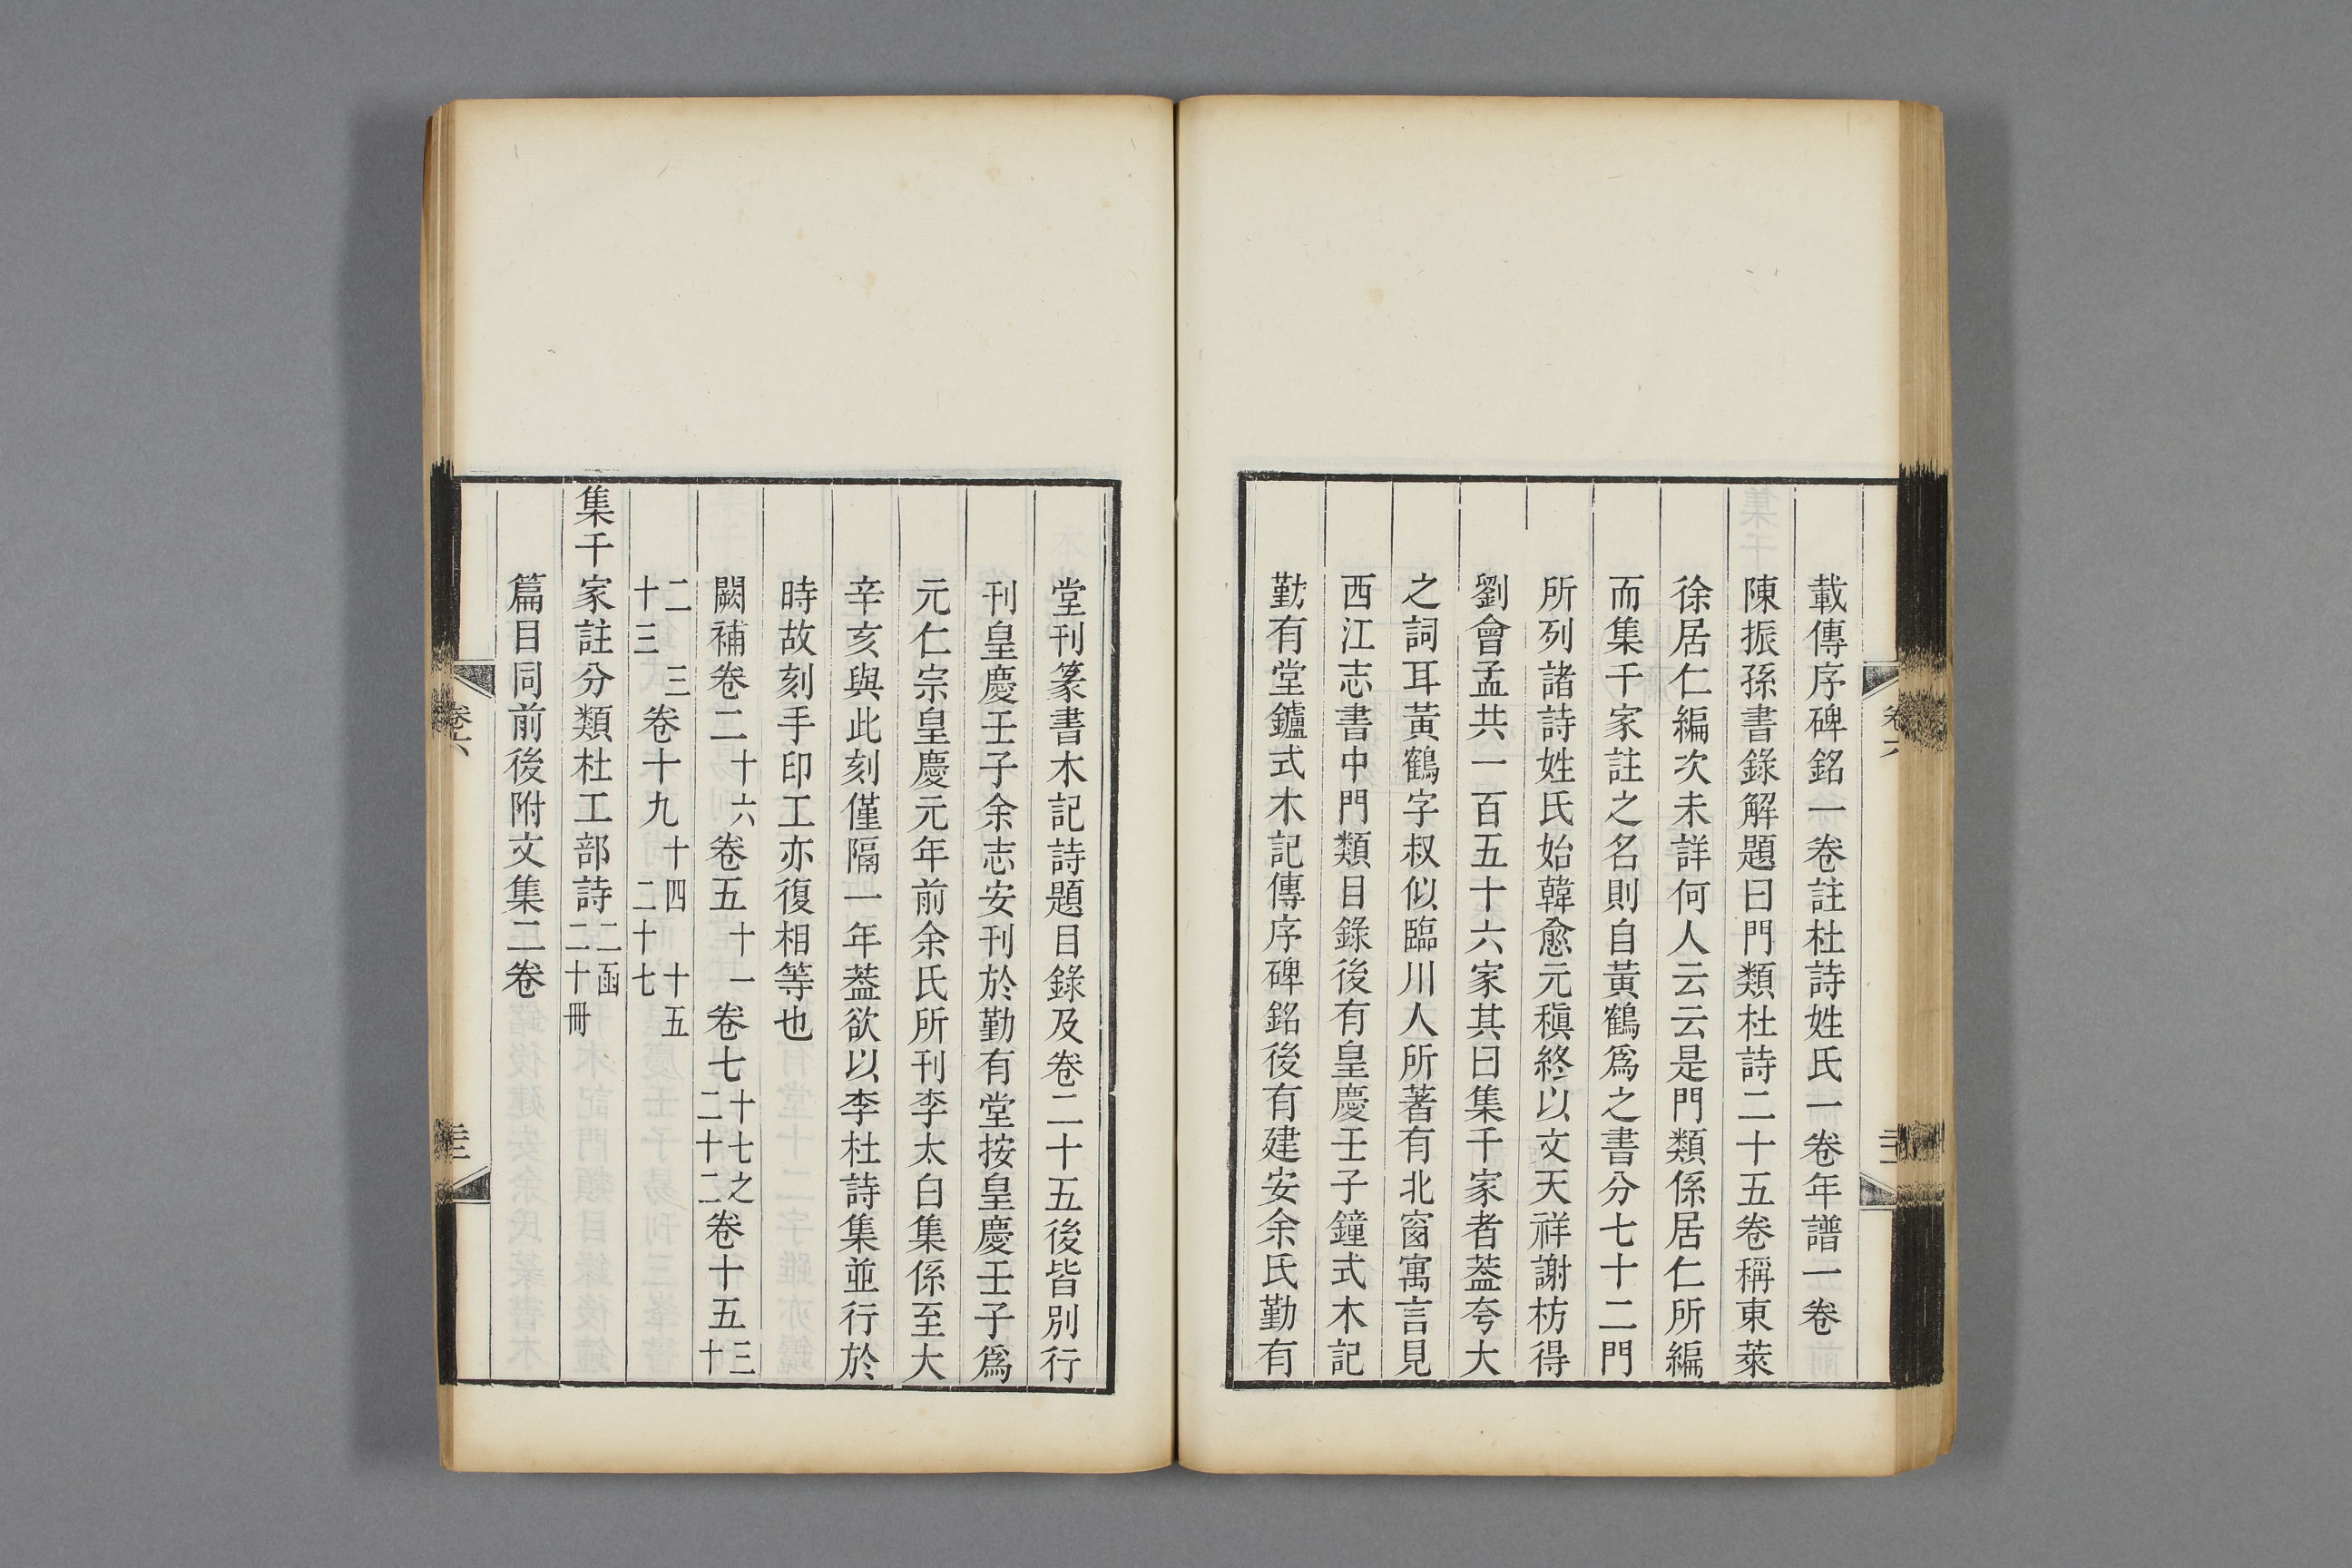 載傳序碑銘一卷註杜詩姓氏一卷年譜一卷
陳振孫書錄解題曰門類杜詩二十五卷稱東萊
徐居仁編次未詳何人云云是門類係居仁所編
而集千家註之名則自黃鶴爲之書分七十二門
所列諸詩姓氏始韓愈元稹終以文天祥謝枋得
劉會孟共一百五十六家其曰集千家者葢夸大
之詞耳黃鶴字叔似臨川人所著有北窗寓言見
西江志書中門類目錄後有皇慶壬子鐘式木記
勤有堂鑪式木記傳序碑銘後有建安余氏勤有
堂刊篆書木記詩題目錄及卷二十五後皆別行
刊皇慶壬子余志安刊於勤有堂按皇慶壬子爲
元仁宗皇慶元年前余氏所刊李太白集係至大
辛亥與此刻僅隔一年葢欲以李杜詩集並行於
時故刻手印工亦復相等也
闕補卷二十六卷五十一卷七十七之二十二卷十五三十
二十三 三卷十九十四 二十七 十五
集千家註分類杜工部詩二函二十冊
篇目同前後附文集二卷
卷六
卷六